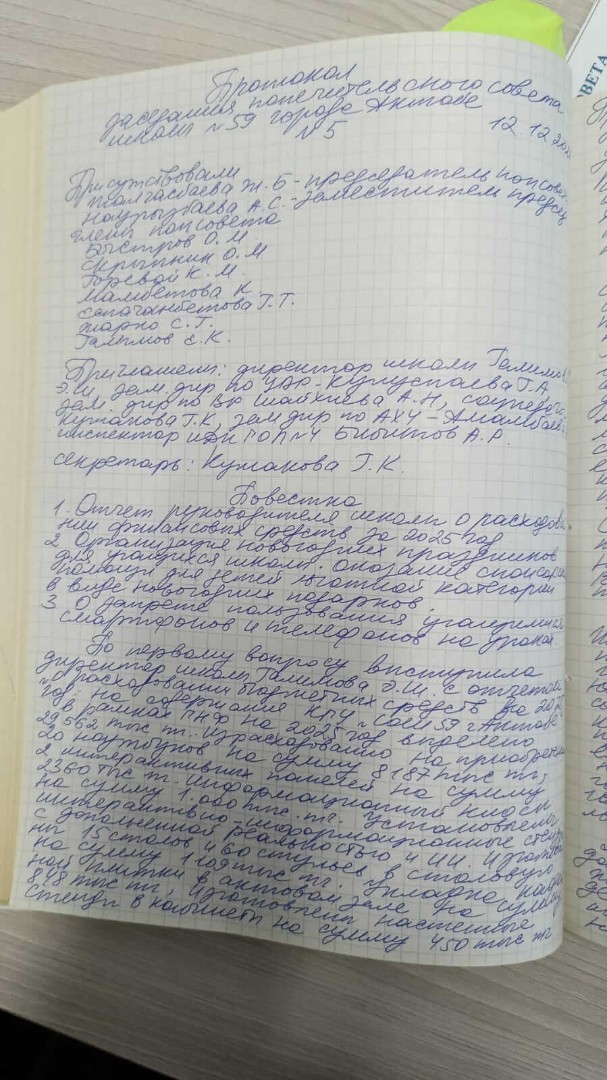 Протокол
заседания попечительского совета
школы №59 города Актобе
№5 12.12.20
Присутствовали
Жалгасбаева Ж.Б - председатель попсове
Наурызбаева А.С. - заместитель предсе
члены попсовета
Быстров О.М
Скрыпник О.М
Горевой К.М.
Мамбетова К.
Сапаганбетова Г.Т.
Жарко С.Г.
Галимов Е.К.
Приглашены: директор школы Галимова
Э.Ш, зам.дир по УВР - Кунуспаева Г.А
зам. дир по ВР Шайхиева А.Н,
Кужакова Г.К, зам дир по АХЧ -
инспектор ИДН ГОП№4 Бибитов А.Р.
секретарь: Кужакова Г.К.
Повестка
1. Отчет руководителя школы о расходова
нии финансовых средств за 2025 год
2 Организация новогодних праздников
для учащихся школы. Оказание спонсорс
помощи для детей льготной категории
в виде новогодних подарков.
3 О запрете пользования учащимися
смартфонов и телефонов на уроках
По первому вопросу выступила
директор школы Галимова Э.Ш. с отчетом
о расходовании бюджетных средств за 2025
год. На содержания КГУ "СОШ 59 г Актобе
в рамках ПНФ на 2025 год выделено
29 562 тыс тг. Израсходованно на приобретени
20 ноутбуков на сумму 8187 тыс тг,
2 интерактивных панелей на сумму
2360 тыс тг. информационный киоск
на сумму 1.000 тыс. тг. Установлены
интерактивно-информационные стенды
с дополненной реальностью и ИИ.
ны 15 столов и 60 стульев в столовую
на сумму 1109 тыс тг. Укладка
ной плитки в актовом зале на сумму
848 тыс тг, изготовлены настенные
стенды в кабинеты на сумму 450 тыс тг
ВЕТА